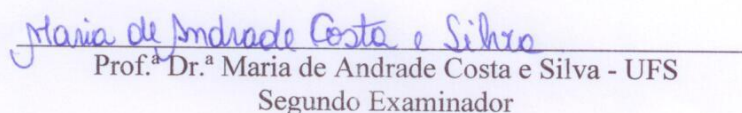 Maria de Andrade Costa e Silva
Prof.ª Dr.ª Maria de Andrade Costa e Silva - UFS
Segundo Examinador